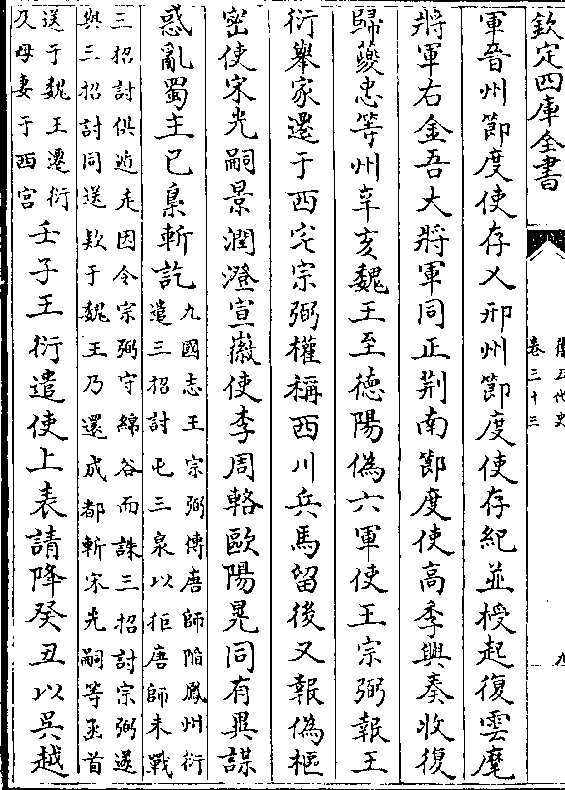 欽定四庫全書
舊五代史
卷三十三
九
軍晉州節度使存乂邢州節度使存紀並授起復雲麾
將軍右金吾大將軍同正荆南節度使高季興奏收復
歸夔忠等州辛亥魏王至德陽偽六軍使王宗弼報王
衍舉家遷于西宅宗弼權稱西川兵馬留後又報偽樞
密使宋光嗣景潤澄宣徽使李周輅歐陽晃同有異謀
惑亂蜀主已梟斬訖
九國志王宗弼傳唐師陷鳳州衍
遣三招討屯三泉以拒唐師未戰
三招討俱遁走因令宗弼守綿谷而誅三招討宗弼遂
與三招討同送款于魏王乃還成都斬宋光嗣等函首
送于魏王遷衍
及母妻于西宫
壬子王衍遣使上表請降癸丑以吳越